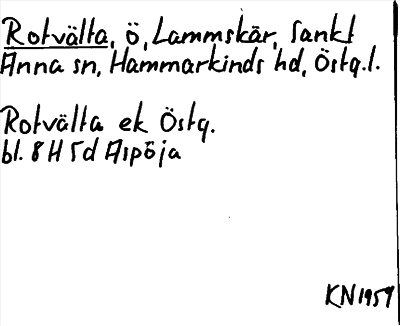 Rotvälta, ö, Lammskär, Sankt
Anna sn, Hammarkinds hd, Östg.l.
Rotvälta ek Östg.
bl. 8H5d Aspöja
KN1959